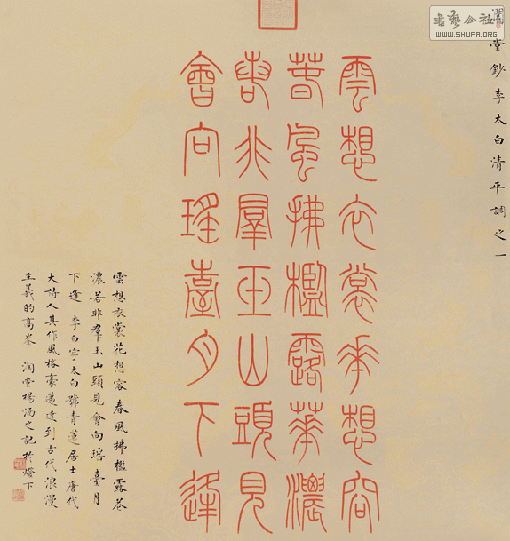 書藝公社
WWW.SHUFA.ORG
堂鈔李太白清平調之一
雲想衣裳華想容
春風拂檻露華濃
若非羣玉山頭見
會向瑤臺月下逢
雲想衣裳花想容 春風拂檻露華
濃若非羣玉山頭見會向瑤臺月
下逢 李白字太白號青蓮居士唐代
大詩人其作風格豪邁達到古代浪漫
主義的高峯 之記於燈下